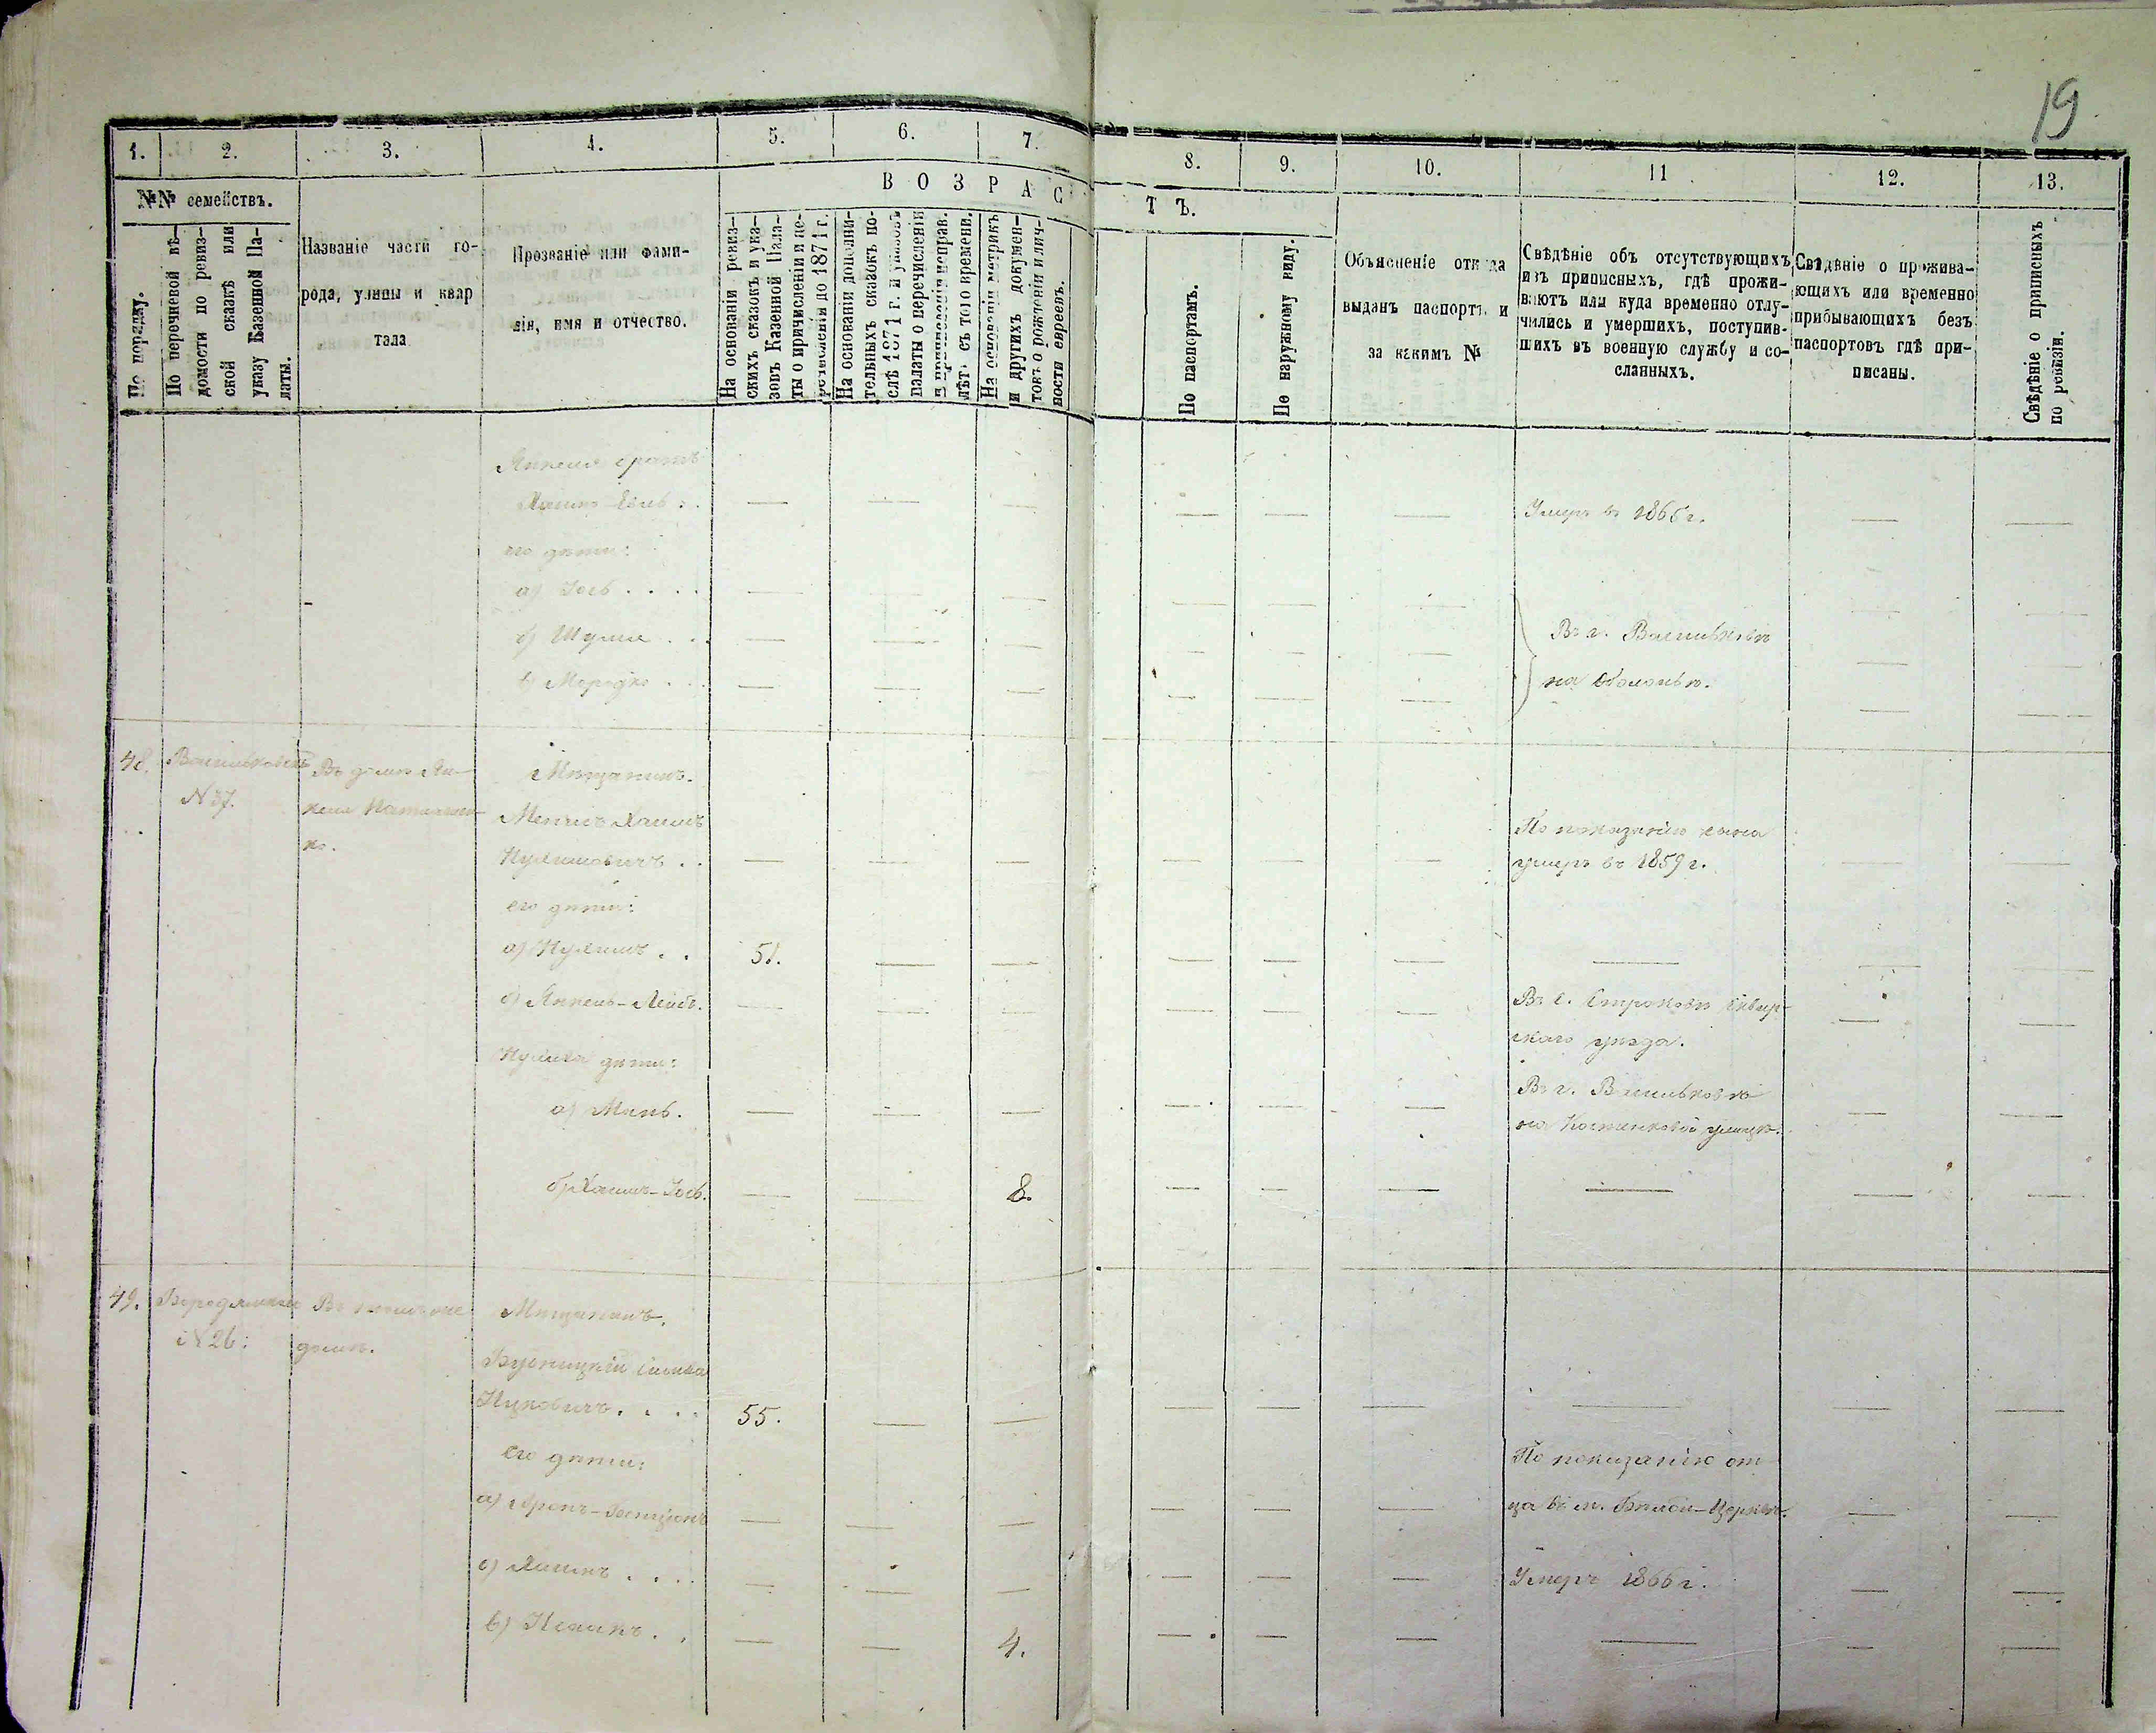 19
1. 2. 3. 4. 5. 6. 7. 8. 9. 10. 11 12. 13.
№№ семействъ.
В О З Р А С Т Ъ.
По порядку.
По перечневой вѣ-
домости по ревиз-
ской сказкѣ или
указу Казенной Па-
латы.
Названіе части го-
рода, улицы и квар
тала
Прозваніе или фами-
лія, имя и отчество.
На основаніи ревиз-
скихъ сказокъ и ука-
зовъ Казенной Пала-
ты о причисленіи и пе-
речисленіи до 1871 г.
На основаніи дополни-
тельныхъ сказокъ по-
слѣ 1871 г. и указовъ
палаты о перечисленіи
и причисленіи исправ.
лѣтъ съ того времени.
На основаніи метрикъ
и другихъ докумен-
товъ о рожденіи и лич-
ности евреевъ.
По паспортамъ.
По наружному виду.
Объясненіе откуда
выданъ паспортъ и
за какимъ №
Свѣдѣніе объ отсутствующихъ
изъ приписныхъ, гдѣ прожи-
ваютъ или куда временно отлу-
чились и умершихъ, поступив-
шихъ въ военную службу и со-
сланныхъ.
Свѣдѣніе о прожива-
ющихъ или временно
прибывающихъ безъ
паспортовъ гдѣ при-
писаны.
Свѣдѣніе о приписныхъ
по ревизіи.
Янкеля братъ
Хаимъ
Умеръ въ 1865 г.
его дѣти:
а) Іось . . . .
б) Шулим . . .
в) Мордко . . .
Въ г. Васильковѣ
на Оболоньѣ.
48. Васильковск
№ 37.
Въ домѣ Ян-
келя
ко.
Мѣщанинъ.
Хаимъ
. .
По показанію сына
умеръ въ 1859 г.
его дѣти:
а) . . 51.
б) Янкель-Лейба.
Въ с. Строковѣ Сквир-
скаго уѣзда.
дѣти:
а)
Въ г. Васильковѣ
на улицѣ.
б) Хаимъ-Іось. 8.
49. Бородянски
№ 26:
Въ
домѣ.
Мѣщанинъ.
Ицковичъ. . . . 55.
его дѣти:
а) Аронъ-
По показанію от-
ца въ м. Бѣлой-Церкви.
б) Хаимъ . . . .
Умеръ 1866 г.
в) . . 4.